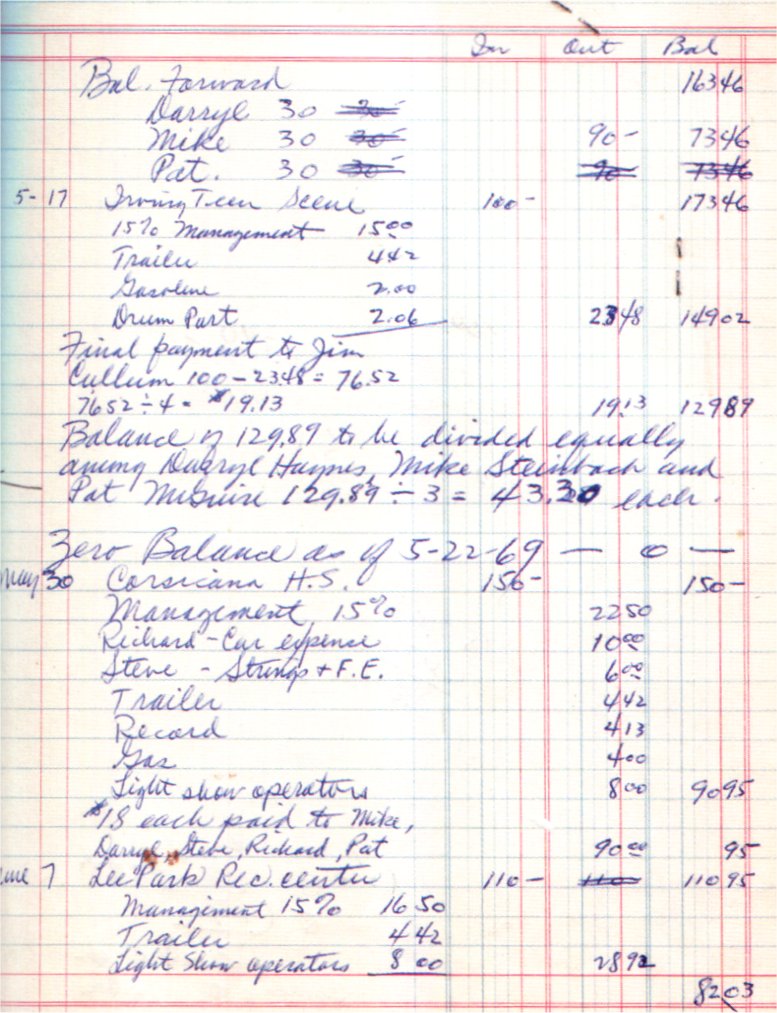 In Out Bal
Bal. Forward 16346
Darryl 30 30
Mike 30 30 90- 7346
Pat. 30 30 90 7346
5-17 Irving Teen Scene 100- 17346
15% Management 15.00
Trailer 442
Gasoline 2.00
Drum Part 2.06 2348 14902
Final payment to Jim
Cullum 100-2348= 76.52
7652÷4= $19.13 1913 12989
Balance of 129.89 to be divided equally
among Darryl Haynes, Mike Steinbach and
Pat McGuire 129.89 ÷ 3 = 43.30 each.
Zero Balance as of 5-22-69 — 0 —
May 30 Corsicana H.S. 150- 150-
Management 15% 2250
Richard - Car expense 1000
Steve - Strings + F.E. 600
Trailer 442
Record 413
Gas 400
Light show operators 800 9095
$18 each paid to Mike,
Darryl, Steve, Richard, Pat 9000 95
une 7 Lee Park Rec. center 110- 110 11095
Management 15% 16 50
Trailer 4 42
Light Show operators 8 00 2892
8203